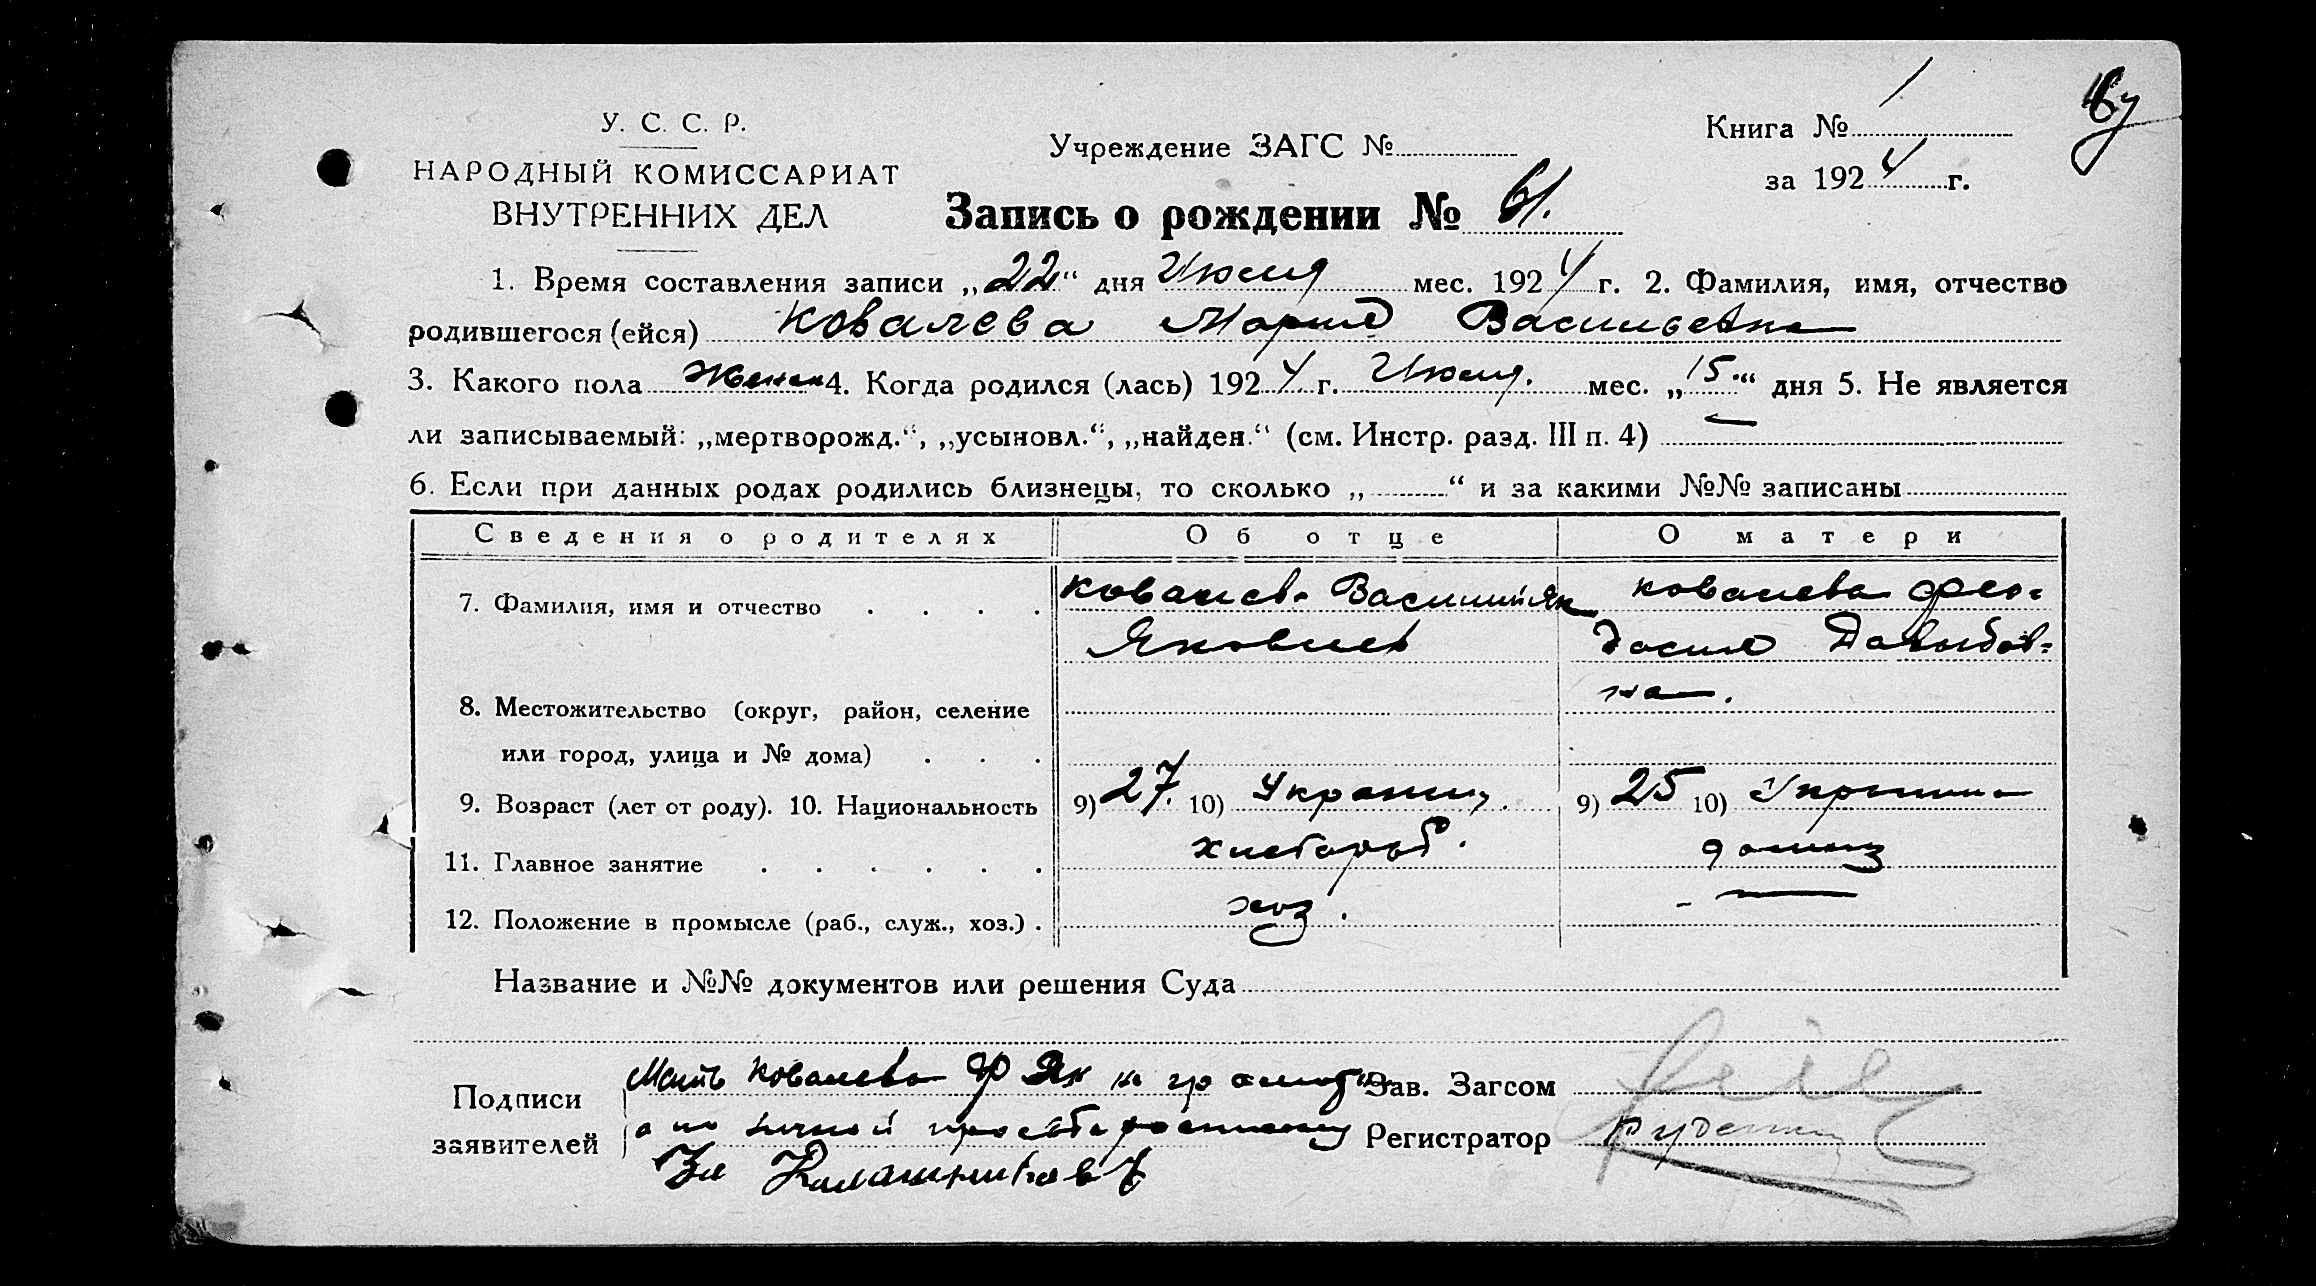 У. С. С. Р.
НАРОДНЫЙ КОМИССАРИАТ
ВНУТРЕННИХ ДЕЛ
Учреждение ЗАГС №
Книга № 1
за 1924 г.
Запись о рождении № 61.
1. Время составления записи „22“ дня Июля мес. 1924 г. 2. Фамилия, имя, отчество
родившегося (ейся) Ковалева Мария Васильевна
3. Какого пола Женск 4. Когда родился (лась) 1924 г. Июля. мес. „15.“ дня 5. Не является
ли записываемый: „мертворожд.“, „усыновл.“, „найден.“ (см. Инстр. разд. III п. 4) —
6. Если при данных родах родились близнецы, то сколько „ “ и за какими №№ записаны
Сведения о родителях Об отце О матери
7. Фамилия, имя и отчество Ковалев Василий Як Ковалева Фео-
Яковлев досия Давыдов-
на.
8. Местожительство (округ, район, селение
или город, улица и № дома)
9. Возраст (лет от роду). 10. Национальность 9) 27. 10) Украинц. 9) 25 10) Украинка
11. Главное занятие хлебороб. домхоз
12. Положение в промысле (раб., служ., хоз.) хоз. —
Название и №№ документов или решения Суда
Подписи
заявителей
Мать Ковалева Ф Як не грамот
а по личной просьбе
За Калашников
Зав. Загсом
Регистратор